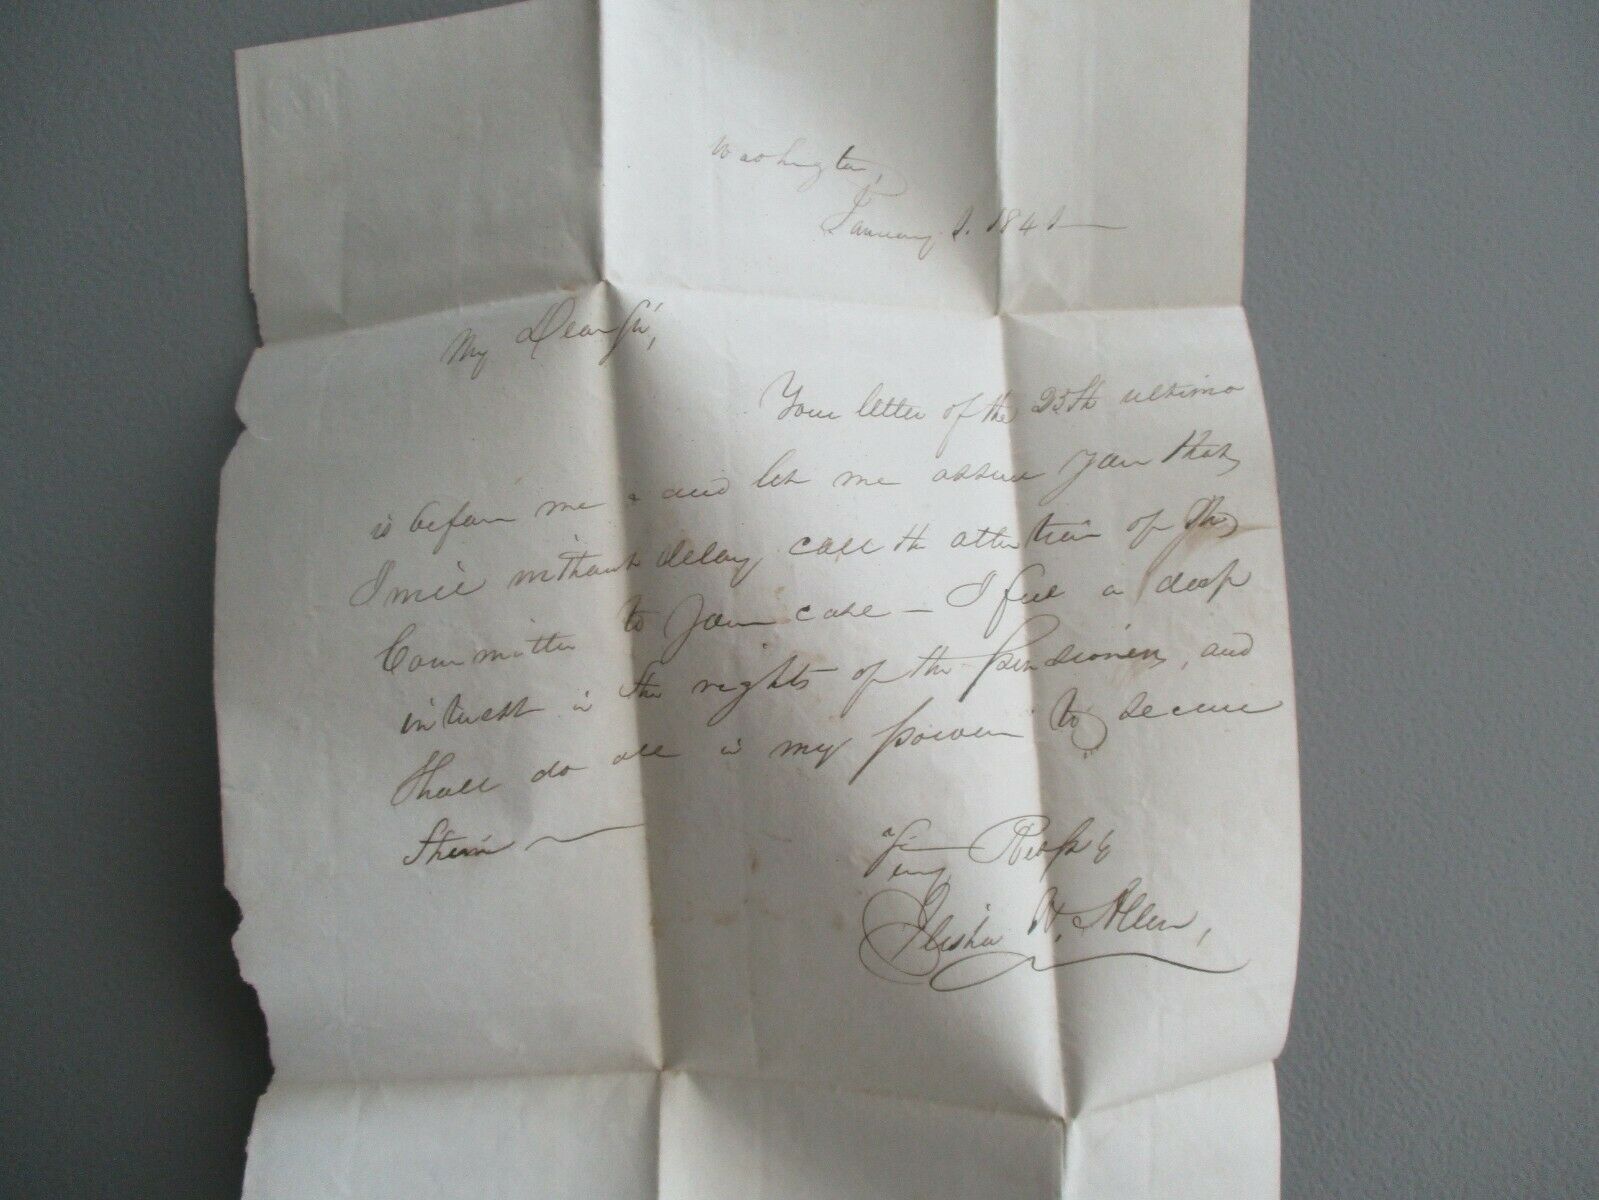 Washington,
January 1. 1841
My Dear Sir,
Your letter of the 25th ultimo
is before me & and let me assure you that
I will without delay call the attention of the
Committee to your case — I feel a deep
interest in the rights of the pensioners, and
shall do all in my power to secure
them
Very Respy
Elisha H. Allen,